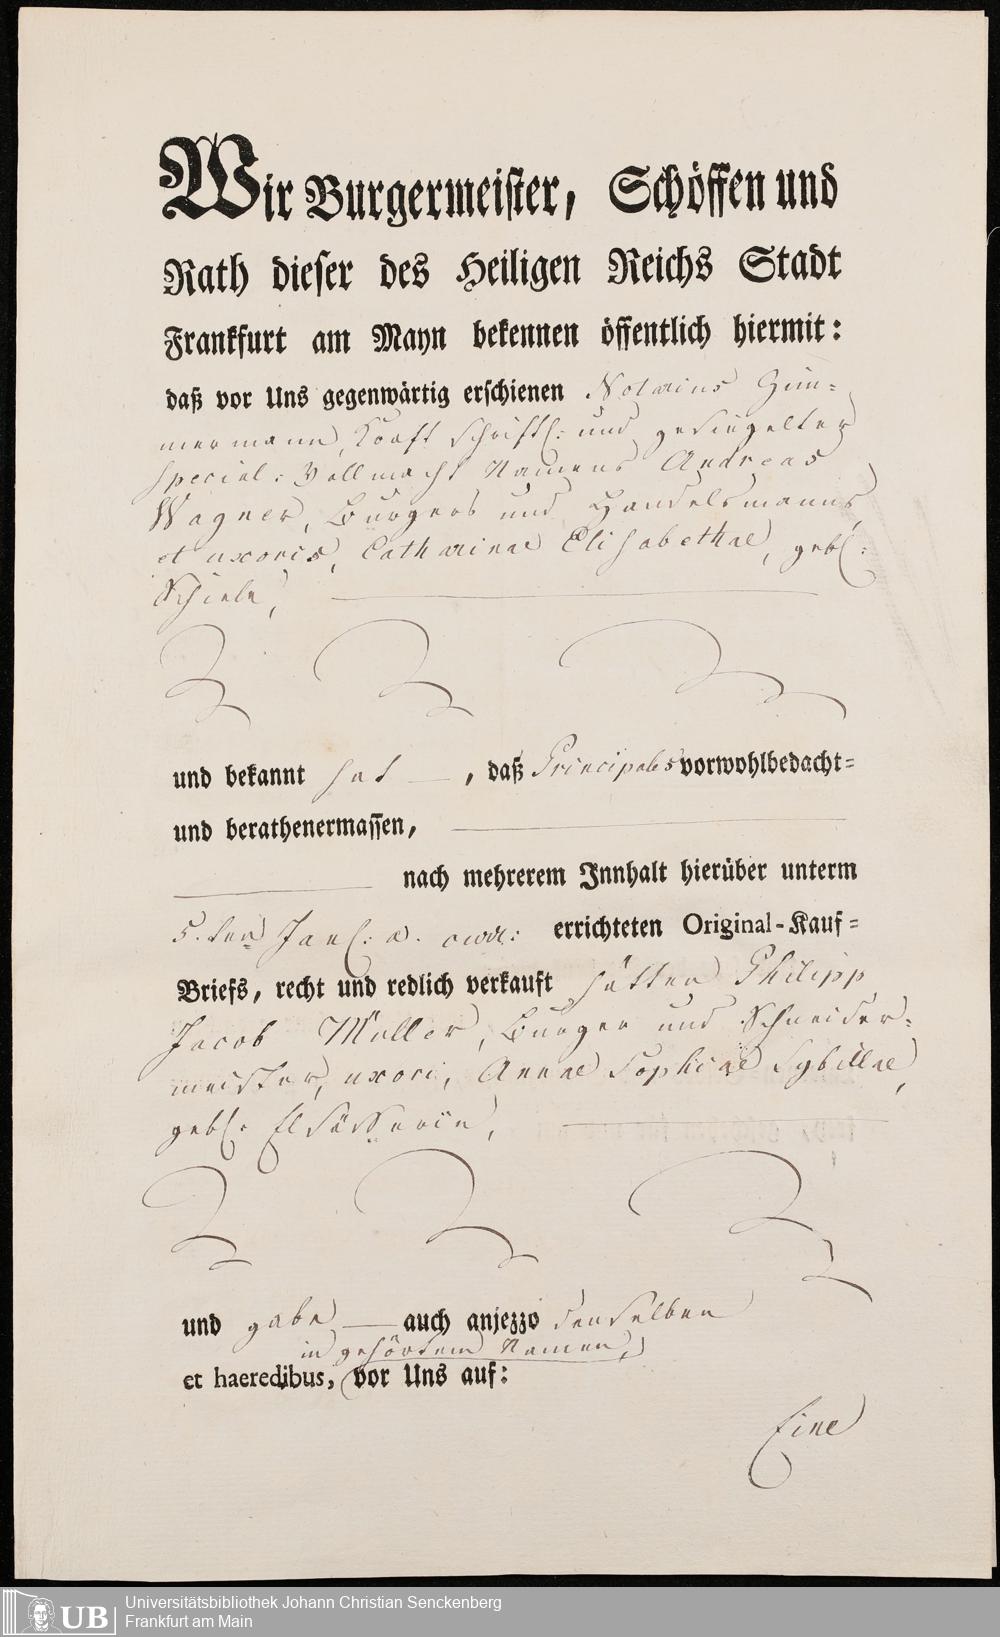 Wir Burgermeister, Schöffen und
Rath dieser des Heiligen Reichs Stadt
Frankfurt am Mayn bekennen öffentlich hiermit:
daß vor Uns gegenwärtig erschienen Notarius Zim-
mermann, Kraft schriftl: und gesiegelter
special: Vollmacht Namens Andreas
Wagner, Burgers und Handelsmanns,
et uxoris, Catharinae Elisabethae, gebl:
Schiele,
und bekannt hat, daß Principales vorwohlbedacht-
und berathenermassen,
nach mehrerem Innhalt hierüber unterm
5.ten Jan: a. errichteten Original-Kauf-
Briefs, recht und redlich verkauft hätten Philipp
Jacob Müller, Burger und Schneider-
meister, uxori, Annae Sophiae Sybillae,
gebl: Elsässerin,
und gabe auch anjezzo denselben
in gehörtem Namen,
et haeredibus, vor Uns auf:
Eine
UB
Universitätsbibliothek Johann Christian Senckenberg
Frankfurt am Main